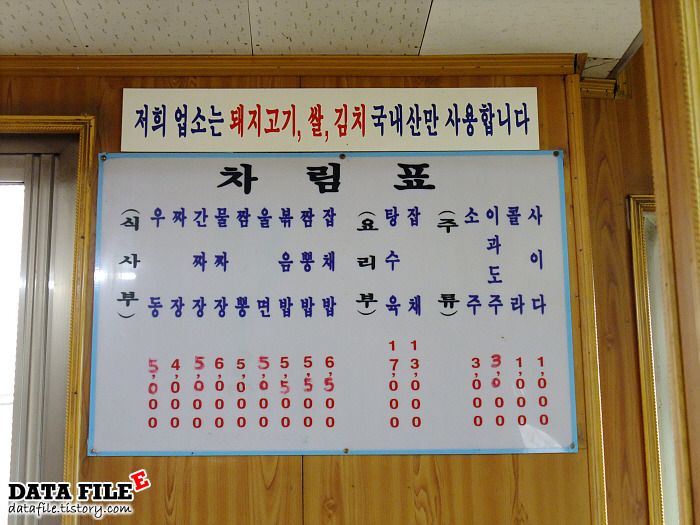 저희 업소는 돼지고기, 쌀, 김치 국내산만 사용합니다
차림표
(식사부)
우동 5,000
짜장 4,000
간짜장 5,000
물짜장 6,000
짬뽕 5,000
울면 5,000
볶음밥 5,500
짬뽕밥 5,500
잡채밥 6,500
(요리부)
탕수육 17,000
잡채 13,000
(주류)
소주 3,000
이과도주 3,000
콜라 1,000
사이다 1,000
DATA FILE E
datafile.tistory.com